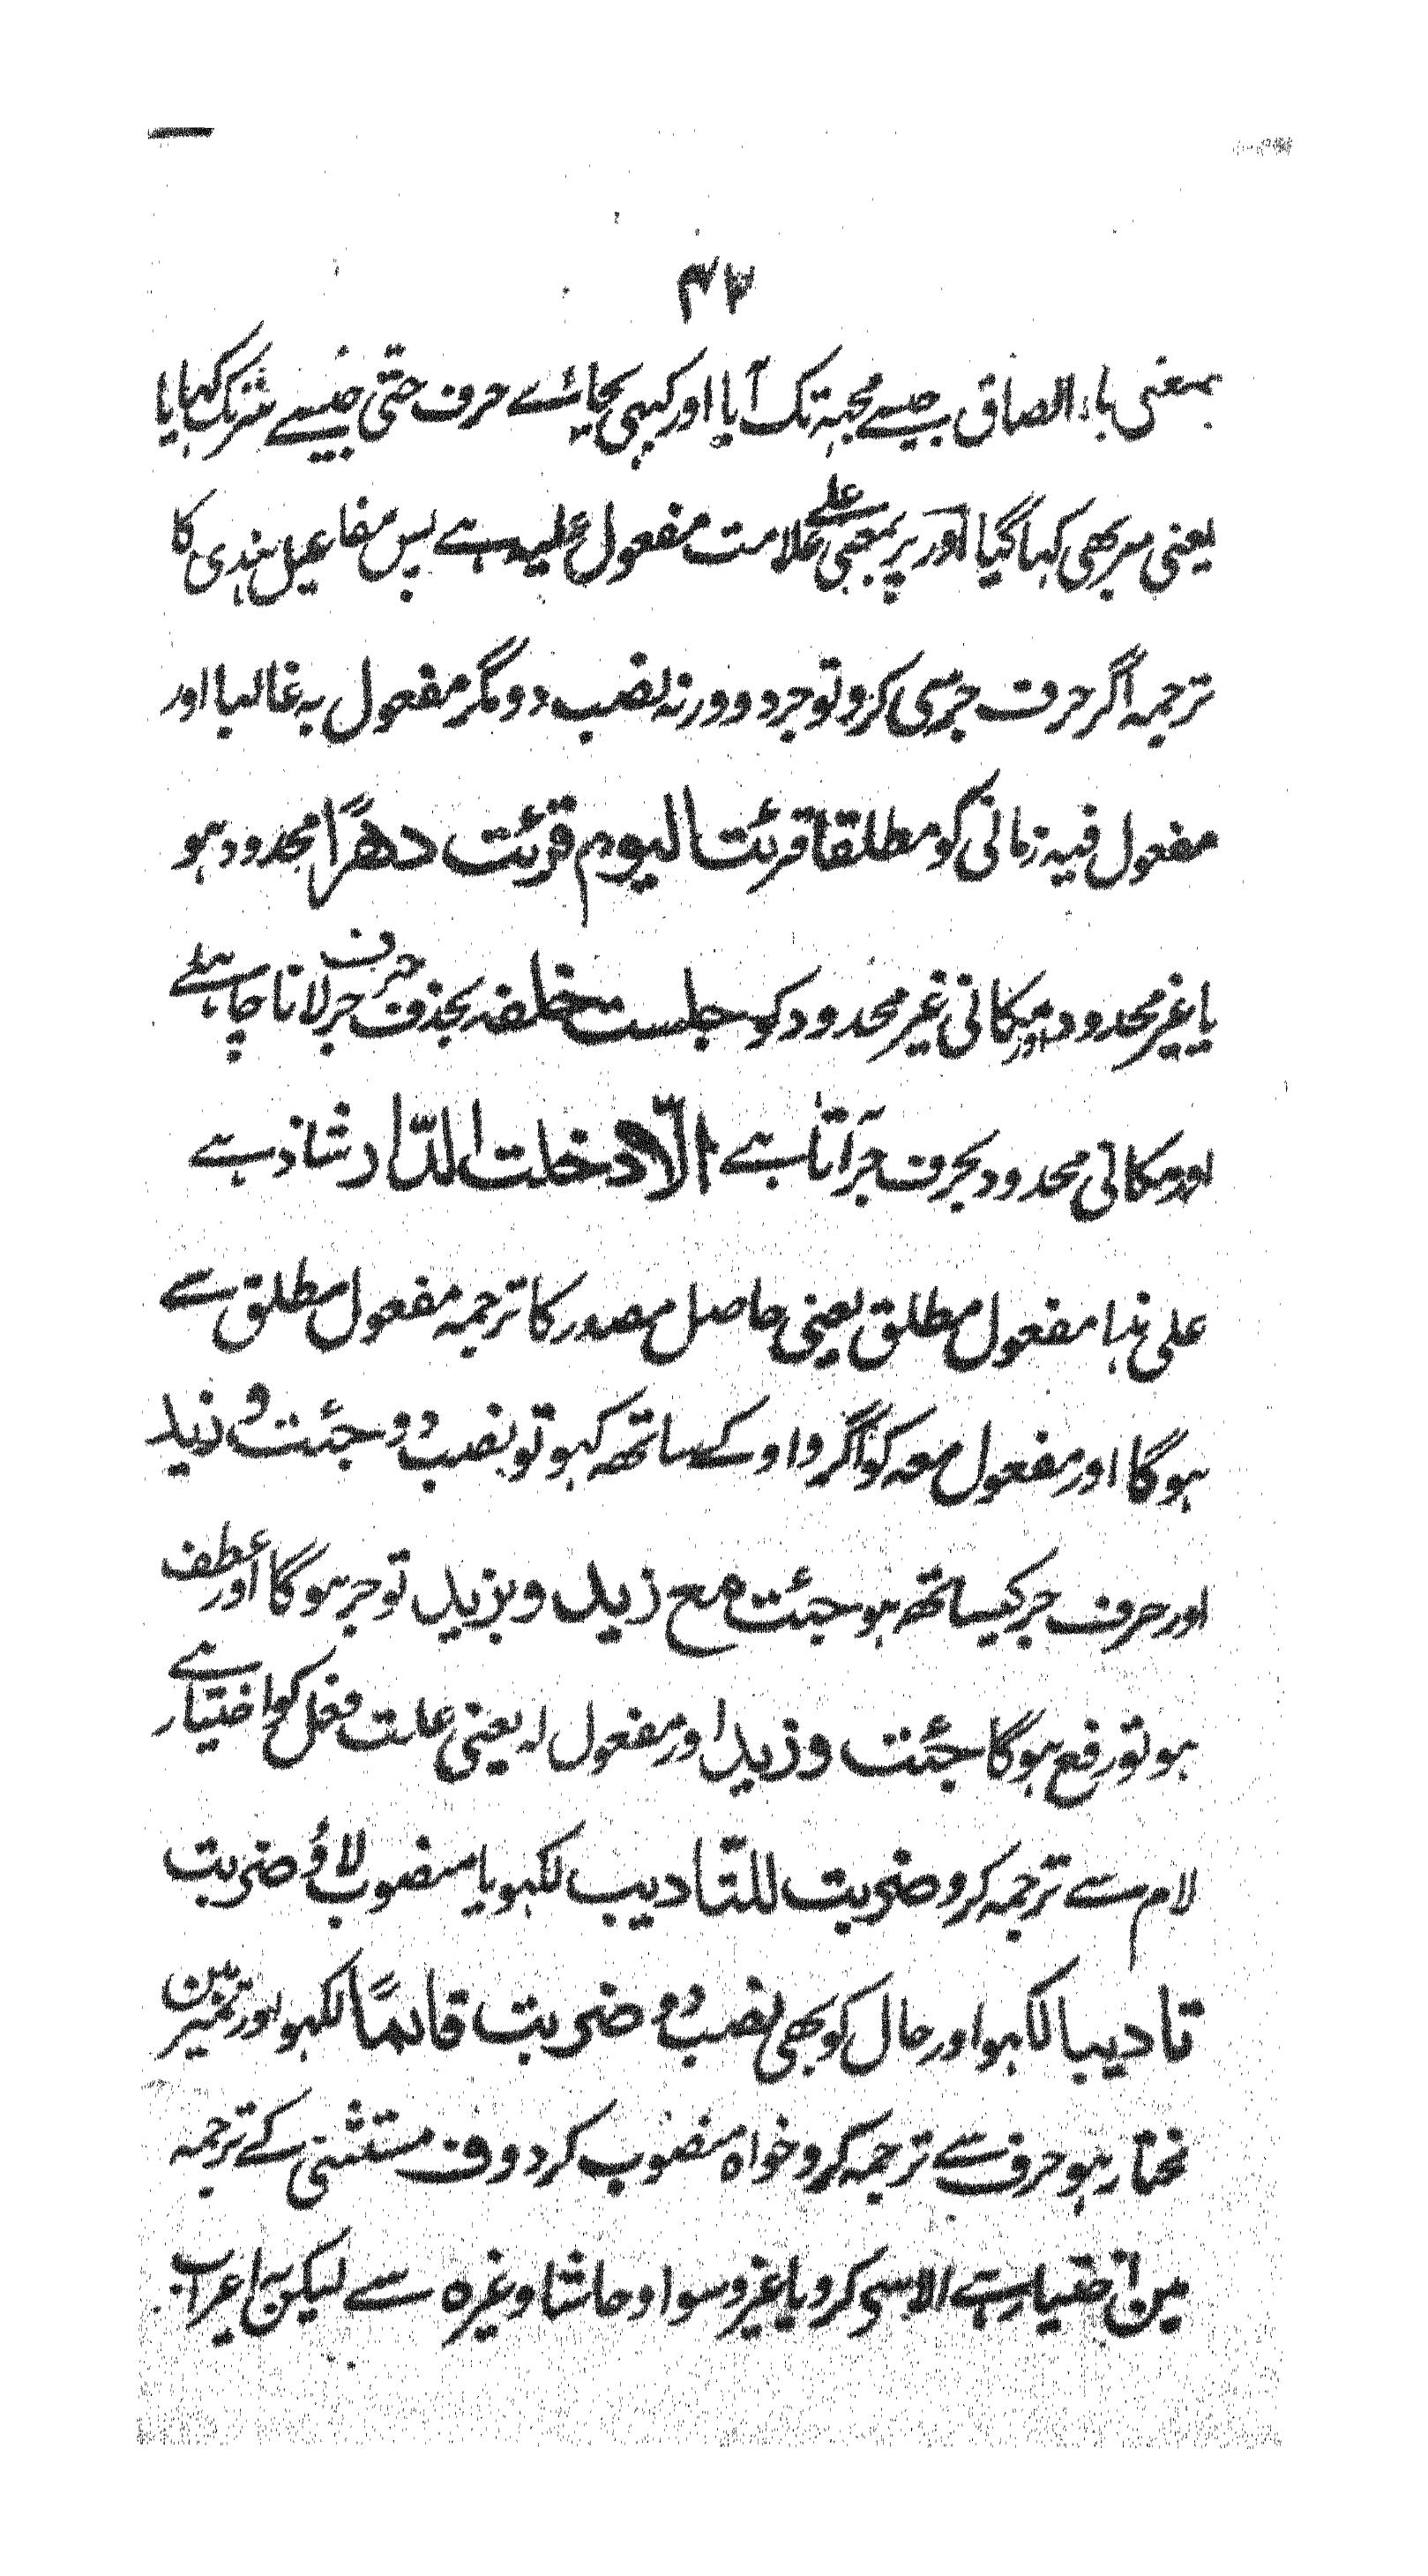 ۴۲
بمعنی باء الصاق جیسے مجہہ تک آیا اور کبہی بجائے حرف حتی جیسے سرتک کہایا
یعنی سر بھی کہا گیا اور پر بمعنی علے علامت مفعول علیہ ہے پس مفاعیل ہندی کا
ترجمہ اگر حرف جرسی کرو تو جر دو ورنہ نصب دو مگر مفعول بہ غالبا اور
مفعول فیہ زمانی کو مطلقا قرئت الیوم قرئت دھرًا محدود ہو
یا غیر محدود اور مکانی غیر محدود کو جلست خلفہ بحذف حرف جر لانا چاہئے
اور مکانی محدود بحرف جر آتا ہے الّا دخلت الدّار شاذ ہے
علی ہذا مفعول مطلق یعنی حاصل مصدر کا ترجمہ مفعول مطلق سے
ہوگا اور مفعول معہ کو اگر واو کے ساتھ کہو تو نصب دو جئت و زید
اور حرف جر کیساتھ ہو جئت مع زید و بزید تو جر ہوگا اور عطف
ہو تو رفع ہوگا جئت و زید اور مفعول لہ یعنی علت فعل کو اختیار ہے
لام سے ترجمہ کرو ضربت للتّادیب لکہو یا منصوب لاؤ ضربت
تادیبا لکہو اور حال کو بھی نصب دو ضربت قائمًا لکہو اور تمیز مین
مختار ہو حرف سے ترجمہ کرو خواہ منصوب کردو ف مستثنی کے ترجمہ
مین اختیار ہے الا سی کرو یا غیر و سوا و حاشا وغیرہ سے لیکن اعراب